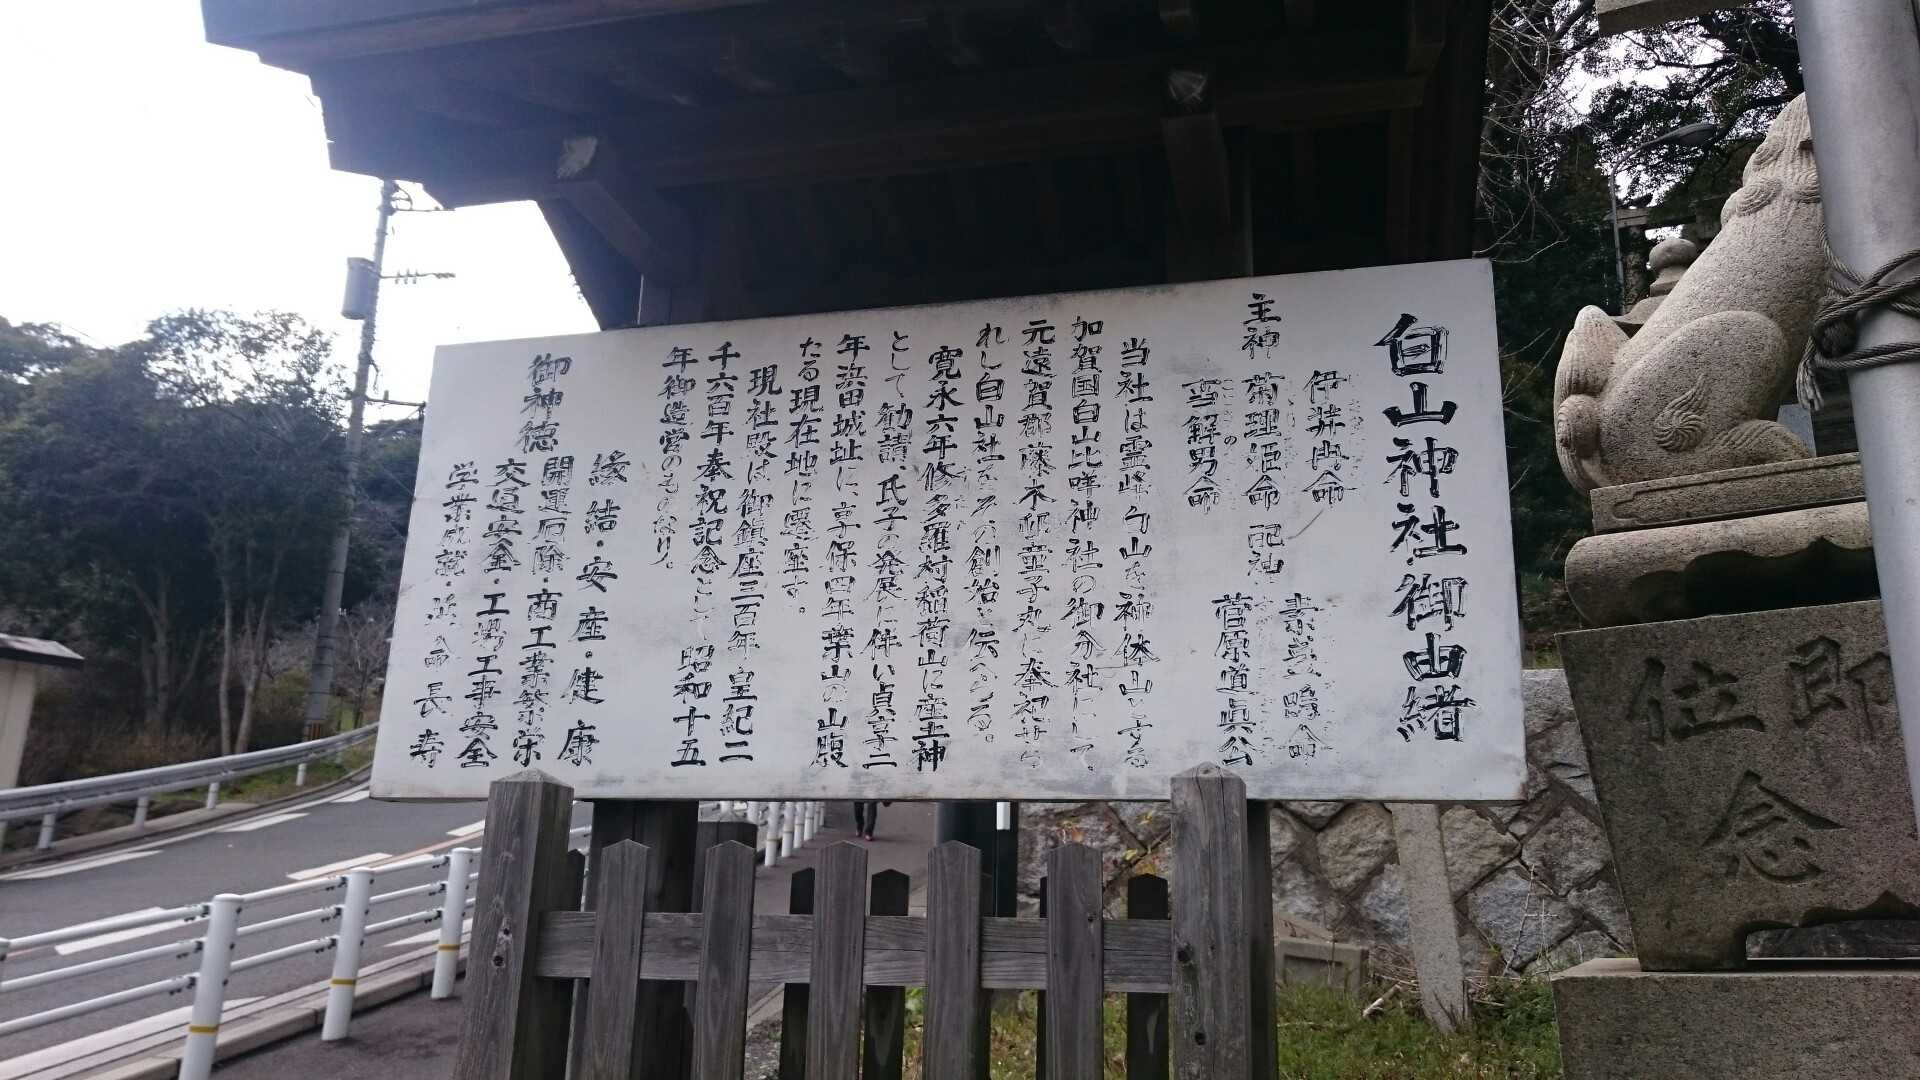 白山神社御由緒
伊弉冉命
主神 菊理姫命 配神 素戔嗚命
雪解男命 菅原道真公
の
当社は霊峰 山を神体山とする
加賀国白山比咩神社の御分社にして
元遠賀郡藤木邨童子丸に奉祀せら
れし白山社をその創始と伝へる。
寛永六年修多羅村稲荷山に産土神
として勧請、氏子の発展に伴い貞享二
年浜田城址に、享保四年葉山の山腹
たる現在地に遷座す。
現社殿は御鎮座三百年皇紀二
千六百年奉祝記念として昭和十五
年御造営のものなり。
御神徳
縁結・安産・健康
開運厄除・商工業繁栄
交通安全・工場工事安全
学業成就・ 命長寿
即位
念